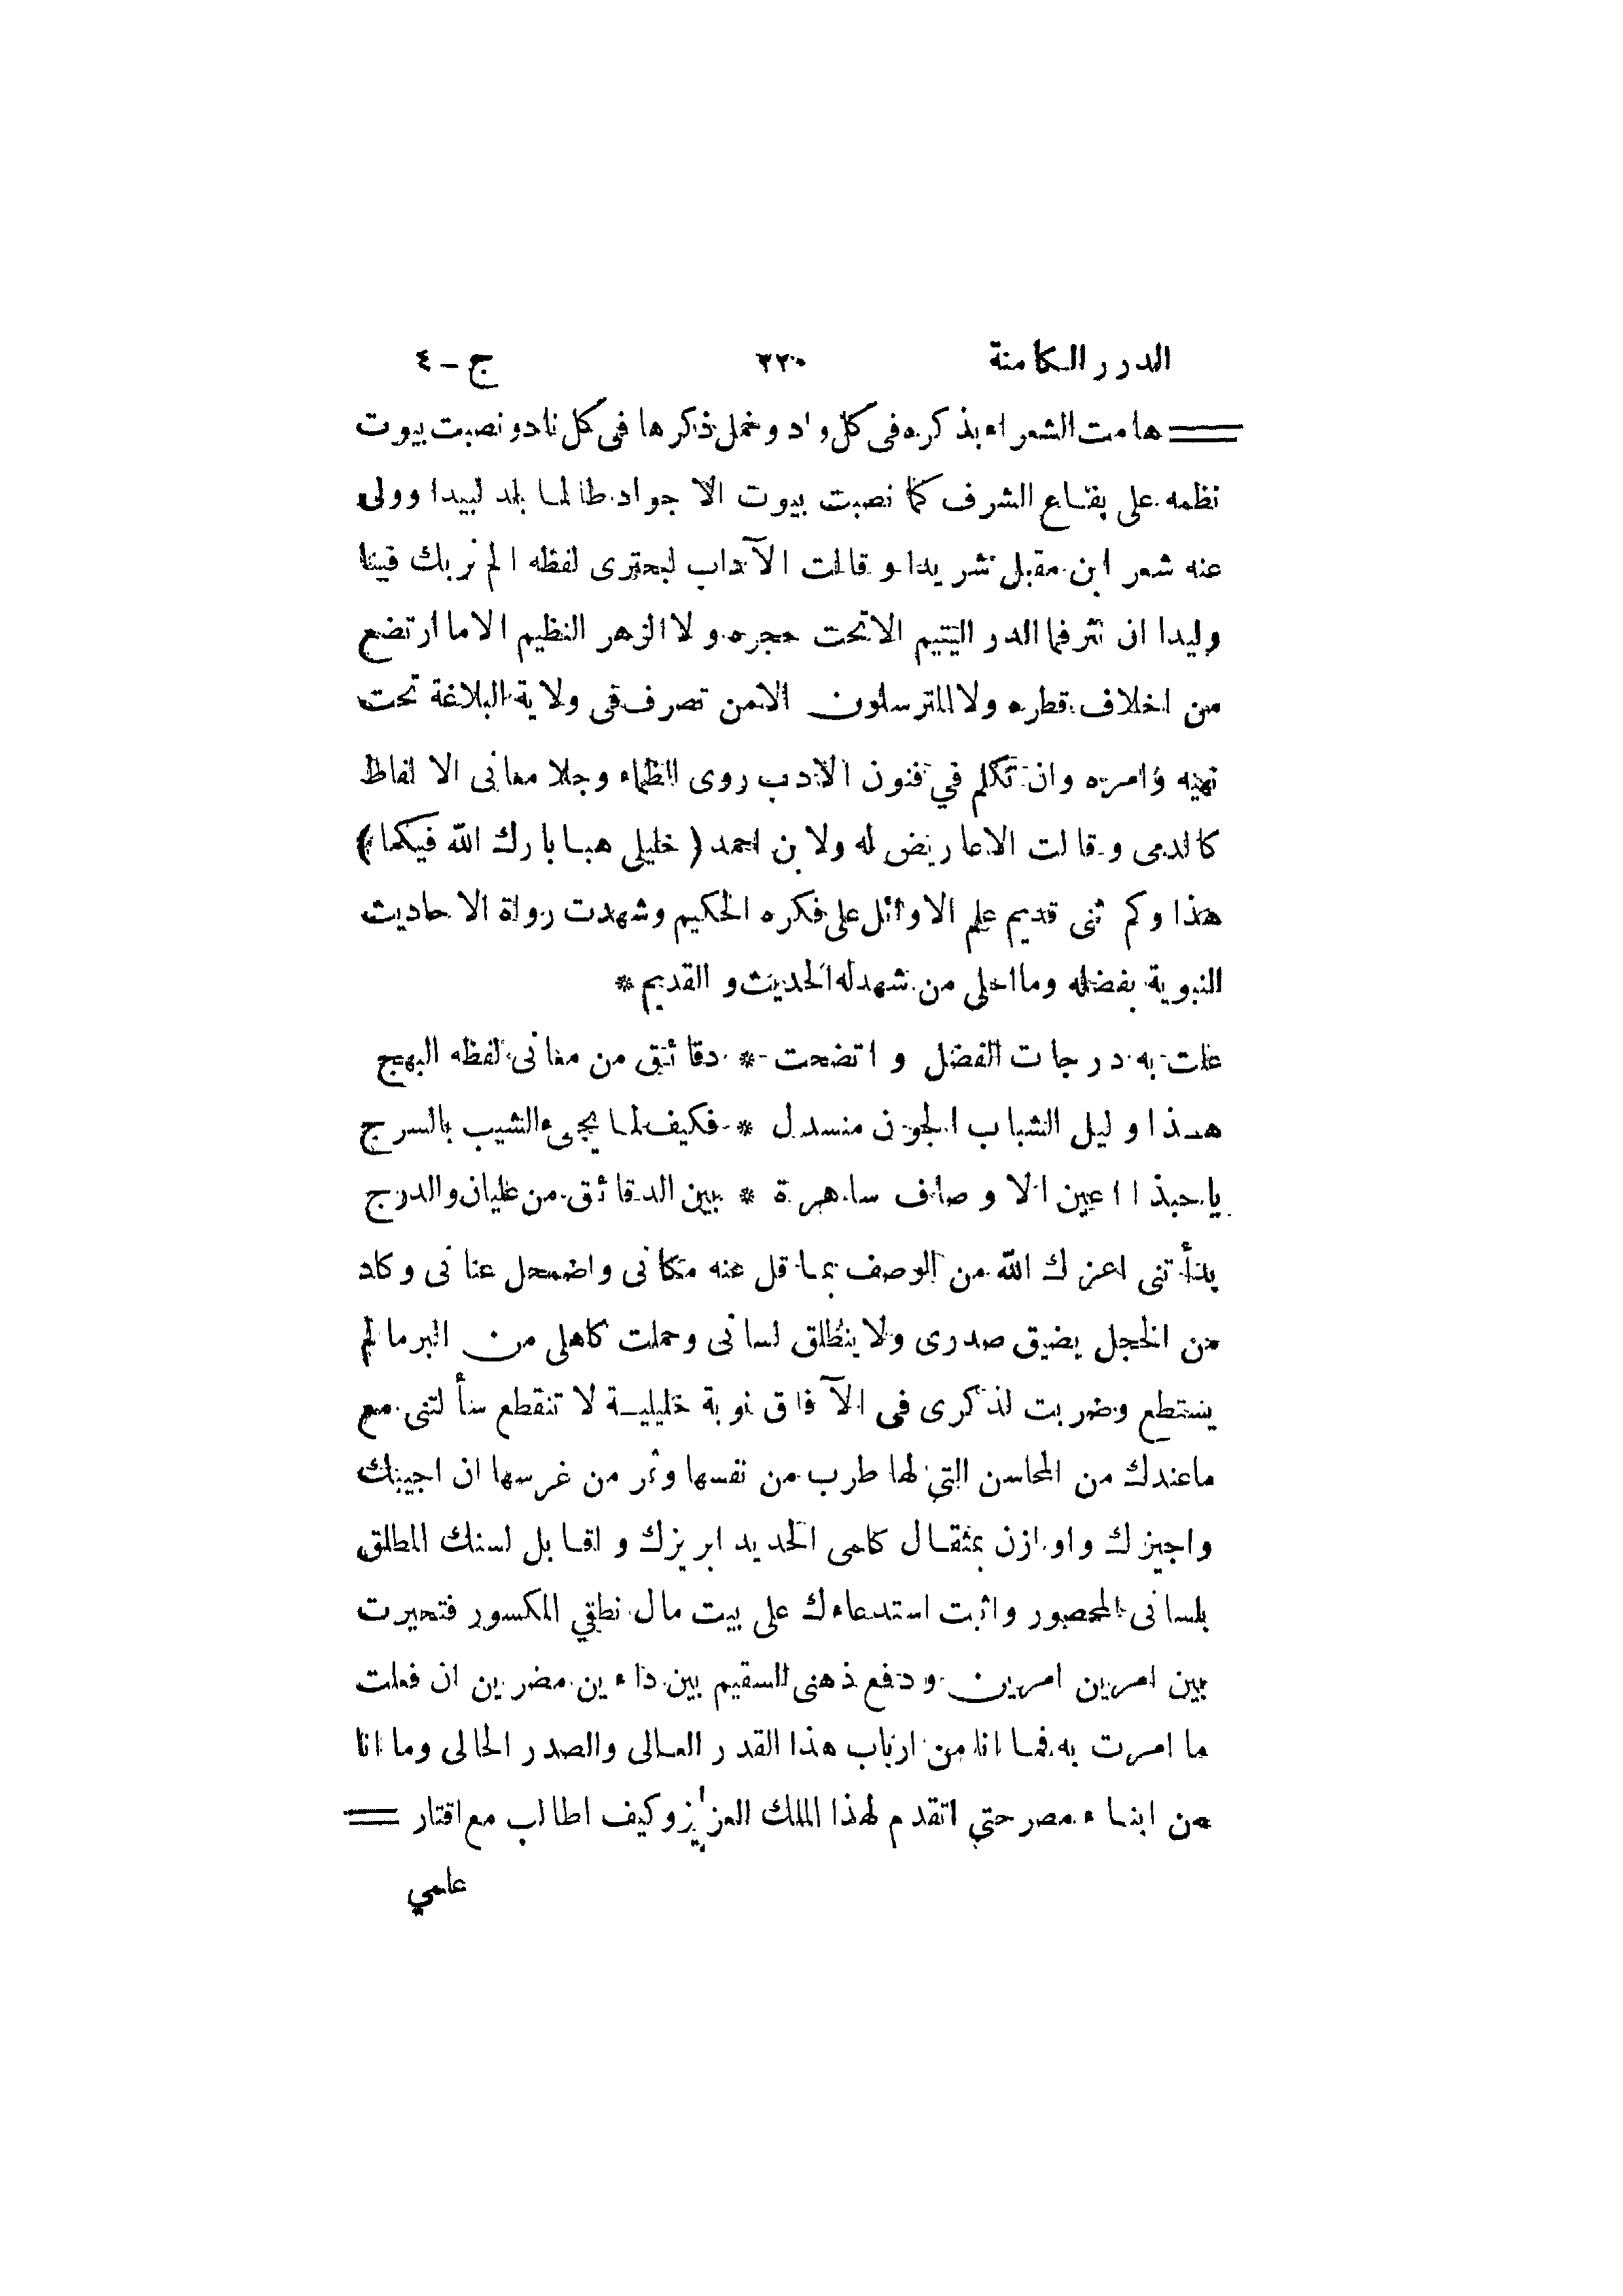 الدرر الكامنة ٢٢٠ ج - ٤
هامت الشعراء بذكره فى كل واد وخمل ذكرها فى كل ناد ونصبت بيوت
نظمه على بقاع الشرف كما نصبت بيوت الاجواد طالما بلد لبيدا وولى
عنه شعر ابن مقبل شريدا و قالت الآداب لبحترى لفظه الم نربك فينا
وليدا ان نثر فما الدر اليتيم الاتحت حجره ولا الزهر النظيم الا ما ارتضع
من اخلاف قطره ولا المترسلون الا من تصرف فى ولاية البلاغة تحت
نهيه وامره وان تكلم في فنون الادب روى الظماء وجلا معانى الالفاظ
كالدمى وقالت الاعاريض له ولابن احمد ( خليلى هبا بارك الله فيكما )
هذا وكم ثنى قديم علم الاوائل على فكره الحكيم وشهدت رواة الاحاديث
النبوية بفضله وما اعلى من شهد له الحديث و القديم *
علت به درجات الفضل و اتضحت * دقائق من معانى لفظه البهج
هذا وليل الشباب الجون منسدل * فكيف لما يجىء الشيب بالسرج
ياحبذا اعين الاوصاف ساهرة * بين الدقائق من عليان والدرج
بدأتنى اعزك الله من الوصف بما قل عنه مكانى واضمحل عنانى وكاد
من الخجل يضيق صدرى ولا ينطلق لسانى وحملت كاهلى من البر ما لم
يستطع وضربت لذكرى فى الآفاق نوبة خليلية لا تنقطع سألتنى مع
ماعندك من المحاسن التى لها طرب من نفسها وثمر من غرسها ان اجيبك
واجيزك واوازن بمثقال كلمى الحديد ابريزك واقابل لسنك المطلق
بلسانى المحصور واثبت استدعاءك على بيت مال نطقي المكسور فتحيرت
بين امرين امرين ودفع ذهنى السقيم بين داءين مضرين ان فعلت
ما امرت به فما انا من ارباب هذا القدر العالى والصدر الحالى وما انا
من ابناء مصر حتى اتقدم لهذا الملك العزيز وكيف اطالب مع اقتار
علمي